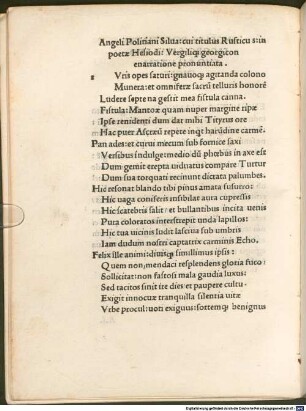 Angeli Politiani Silua: cui titulus Rusticus: in
poetæ Hesiodi: Vergiliiq; georgicon
enarratione pronuntiata.
Vris opes saturi: gnauoq; agitanda colono
Munera: et omniferæ sacrũ telluris honorẽ
Ludere septena gestit mea fistula canna.
Fistula: Mantoæ quam nuper margine ripæ
Ipse renidenti dum dat mihi Tityrus ore
Hac puer Ascreũ repete inqt harũdine carmẽ.
Pan ades: et curui mecum sub fornice saxi
Versibus indulge: medio dũ phœbus in axe est
Dum gemit erepta uiduatus compare Turtur
Dum sua torquati recinunt dictata palumbes.
Hic resonat blando tibi pinus amata susurro:
Hic uaga coniferis insibilat aura cupressis
Hic scatebris salit: et bullantibus incita uenis
Pura coloratos interstrepit unda lapillos:
Hic tua uicinis ludit lasciua sub umbris
Iam dudum nostri captatrix carminis Echo.
Felix ille animi: diuisq; simillimus ipsis:
Quem non mendaci resplendens gloria fuco:
Sollicitat: non fastosi mala gaudia luxus:
Sed tacitos sinit ire dies et paupere cultu
Exigit innocuæ tranquilla silentia uitæ
Vrbe procul: uoti exiguus: sortemq; benignus